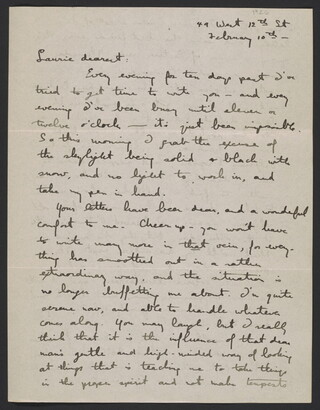 44 West 12th St
February 10th —
Laurie dearest:
Every evening for ten days past I've
tried to get time to write you — and every
evening I've been busy until eleven or
twelve o'clock — it's just been impossible.
So this morning I grab the excuse of
the skylight being solid & black with
snow, and no light to work in, and
take my pen in hand.
Your letters have been dear, and a wonderful
comfort to me. Cheer up - you won't have
to write any more in that vein, for every-
thing has smoothed out in a rather
extraordinary way, and the situation is
no longer buffetting me about. I'm quite
serene now, and able to handle whatever
comes along. You may laugh, but I really
think that it is the influence of that dear
man's gentle and high-minded way of looking
at things that is teaching me to take things
in the proper spirit and not make tempests